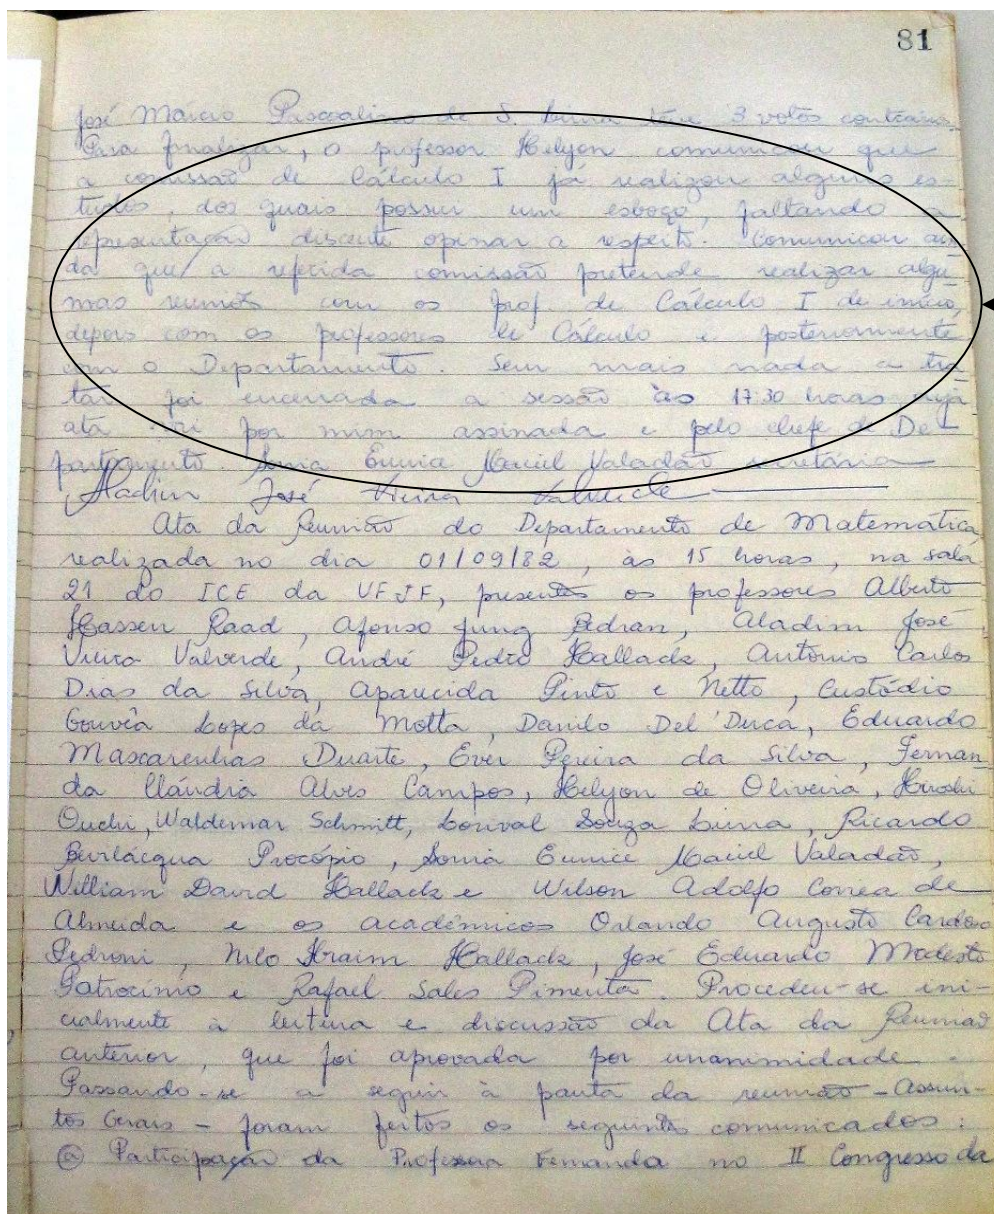 81
José Márcio Pascoalino de S. Lima teve 3 votos contrários.
Para finalizar, o professor Helyon comunicou que
a comissão de Cálculo I já realizou alguns es-
tudos, dos quais possui um esboço, faltando a
representação discente opinar a respeito. Comunicou ain-
da que a referida comissão pretende realizar algu-
mas reuniões com os prof. de Cálculo I de início,
depois com os professores de Cálculo e posteriormente
com o Departamento. Sem mais nada a tra-
tar foi encerrada a sessão às 17:30 horas cuja
ata vai por mim assinada e pelo chefe do De-
partamento. Sonia Eunice Maciel Valadão secretária
Aladim José Vieira Valverde
Ata da Reunião do Departamento de Matemática
realizada no dia 01/09/82, às 15 horas, na sala
21 do ICE da UFJF, presentes os professores Alberto
Hassen Raad, Afonso Jung Bedran, Aladim José
Vieira Valverde, André Pedro Hallack, Antonio Carlos
Dias da Silva, Aparecida Pinto e Netto, Custódio
Gouvêa Lopes da Motta, Danilo Del'Duca, Eduardo
Mascarenhas Duarte, Ever Pereira da Silva, Fernan
da Cláudia Alves Campos, Helyon de Oliveira, Hiroshi
Ouchi, Waldemar Schmitt, Lorival Souza Lima, Ricardo
Bevilácqua Procópio, Sonia Eunice Maciel Valadão,
William David Hallack e Wilson Adolfo Correa de
Almeida e os acadêmicos Orlando Augusto Cardoso
Pedroni, Nilo Hallack, José Eduardo Modesto
Patrocínio e Rafael Sales Pimenta. Procedeu-se ini-
cialmente à leitura e discussão da Ata da Reunião
anterior, que foi aprovada por unanimidade.
Passando-se a seguir à pauta da reunião - Assun-
tos Gerais - foram feitos os seguintes comunicados:
ⓐ Participação da Professora Fernanda no II Congresso da